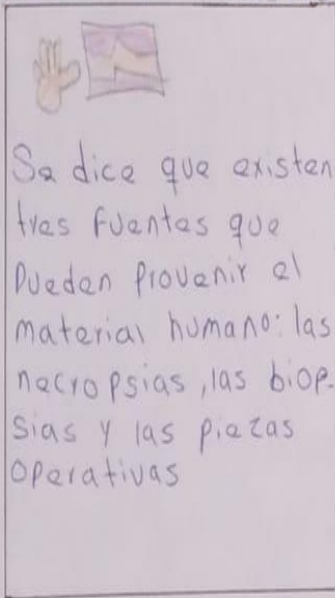 Se dice que existen
tres fuentes que
pueden provenir el
material humano: las
necropsias, las biop-
sias y las piezas
operativas